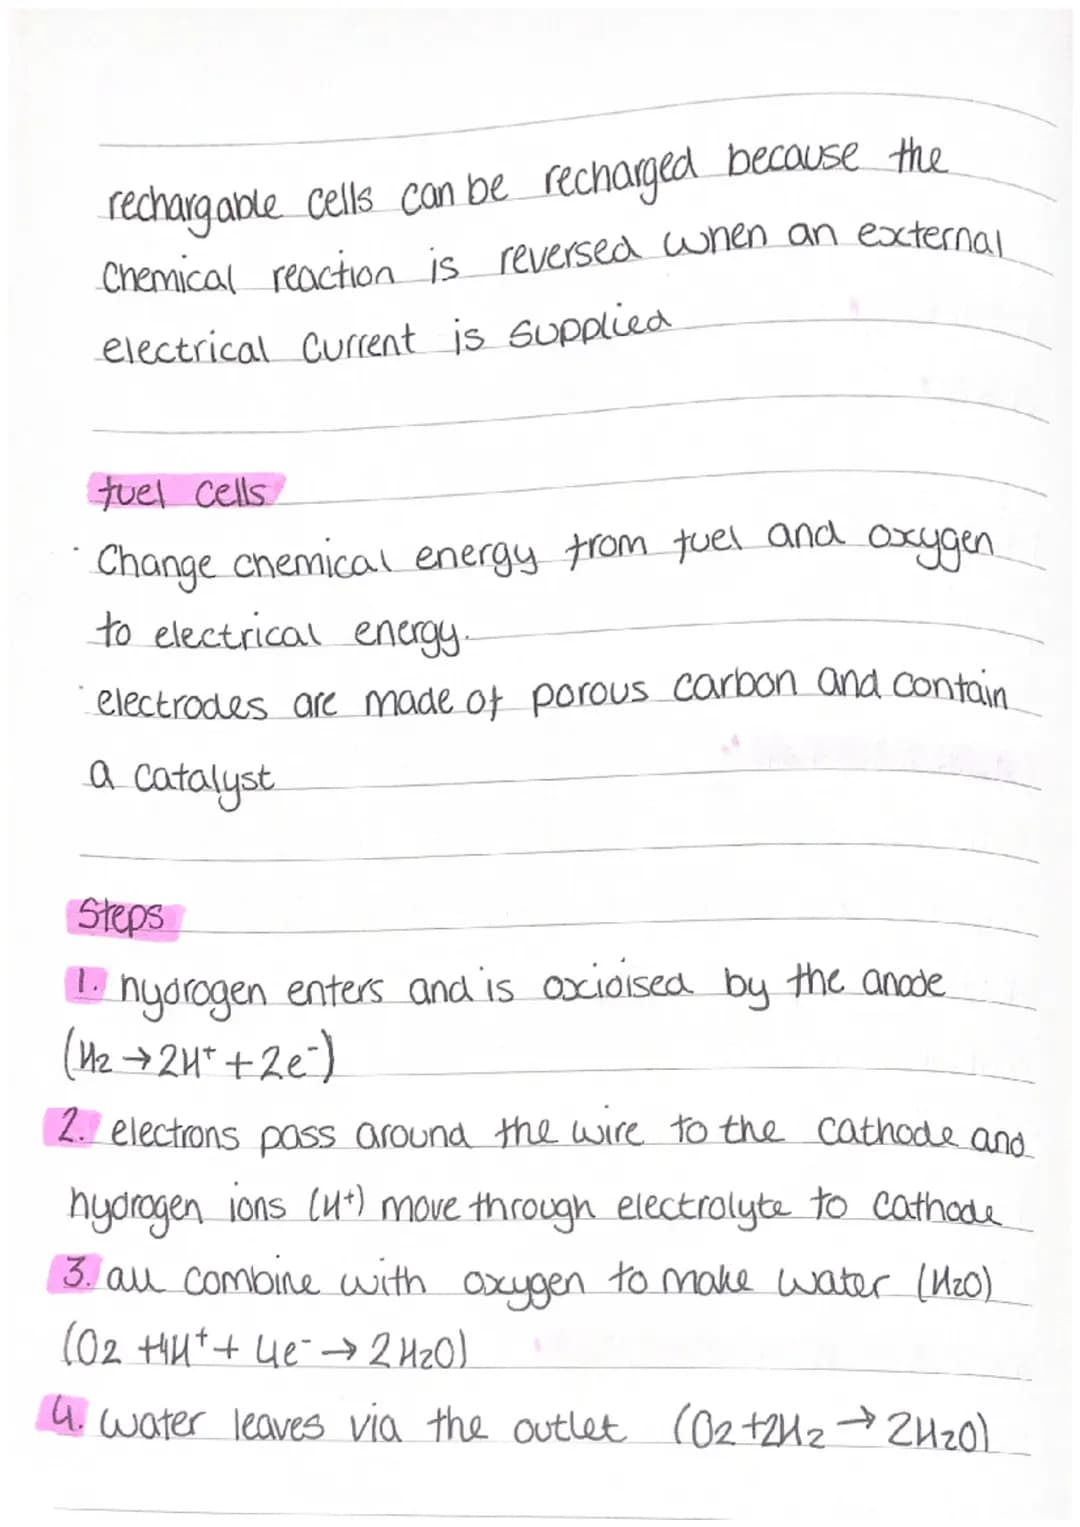 rechargable cells can be recharged because the
chemical reaction is reversed when an external
electrical current is supplied
fuel cells
· Change chemical energy from fuel and oxygen
to electrical energy.
· electrodes are made of porous carbon and contain
a catalyst
Steps
1. hydrogen enters and is oxidised by the anode
(H2 → 2H⁺ + 2e⁻)
2. electrons pass around the wire to the cathode and
hydrogen ions (H⁺) move through electrolyte to cathode
3. all combine with oxygen to make water (H2O)
(O2 + 4H⁺ + 4e⁻ → 2H2O)
4. water leaves via the outlet (O2 + 2H2 → 2H2O)